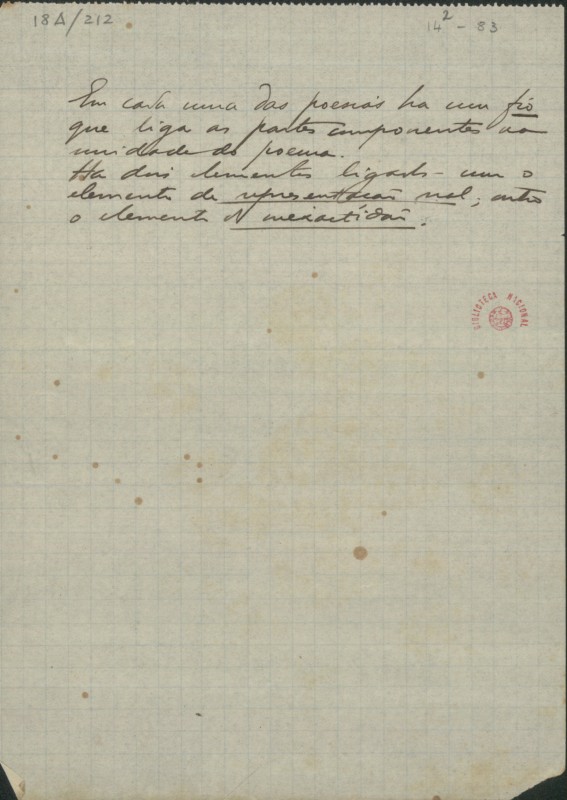 18A/212
14² - 83
Em cada uma das poesias ha um fio
que liga as partes componentes na
unidade do poema.
Ha dois elementos ligants - um o
elemento de representação real; outro
o elemento de inexactidão.
BIBLIOTECA NACIONAL